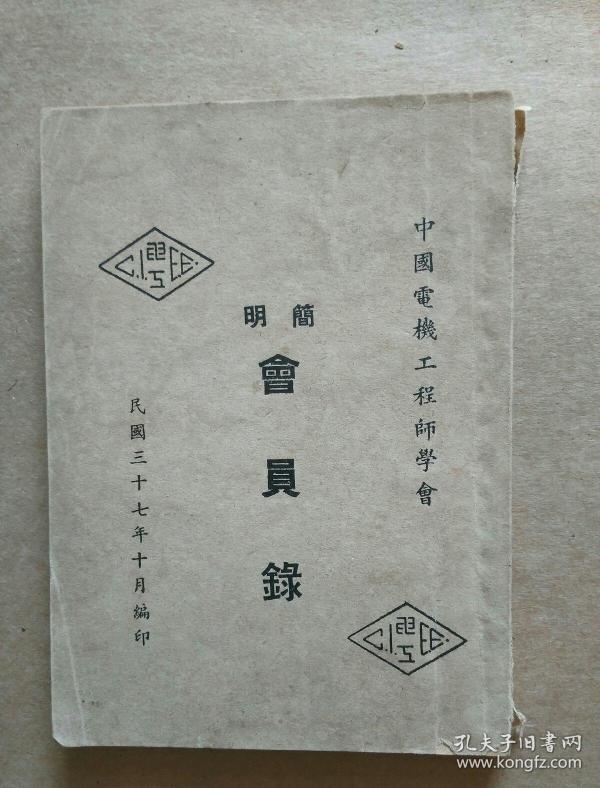 中國電機工程師學會
簡明
會員錄
民國三十七年十月編印
C.I.E.E.
C.I.E.E.
孔夫子旧書网
www.kongfz.com